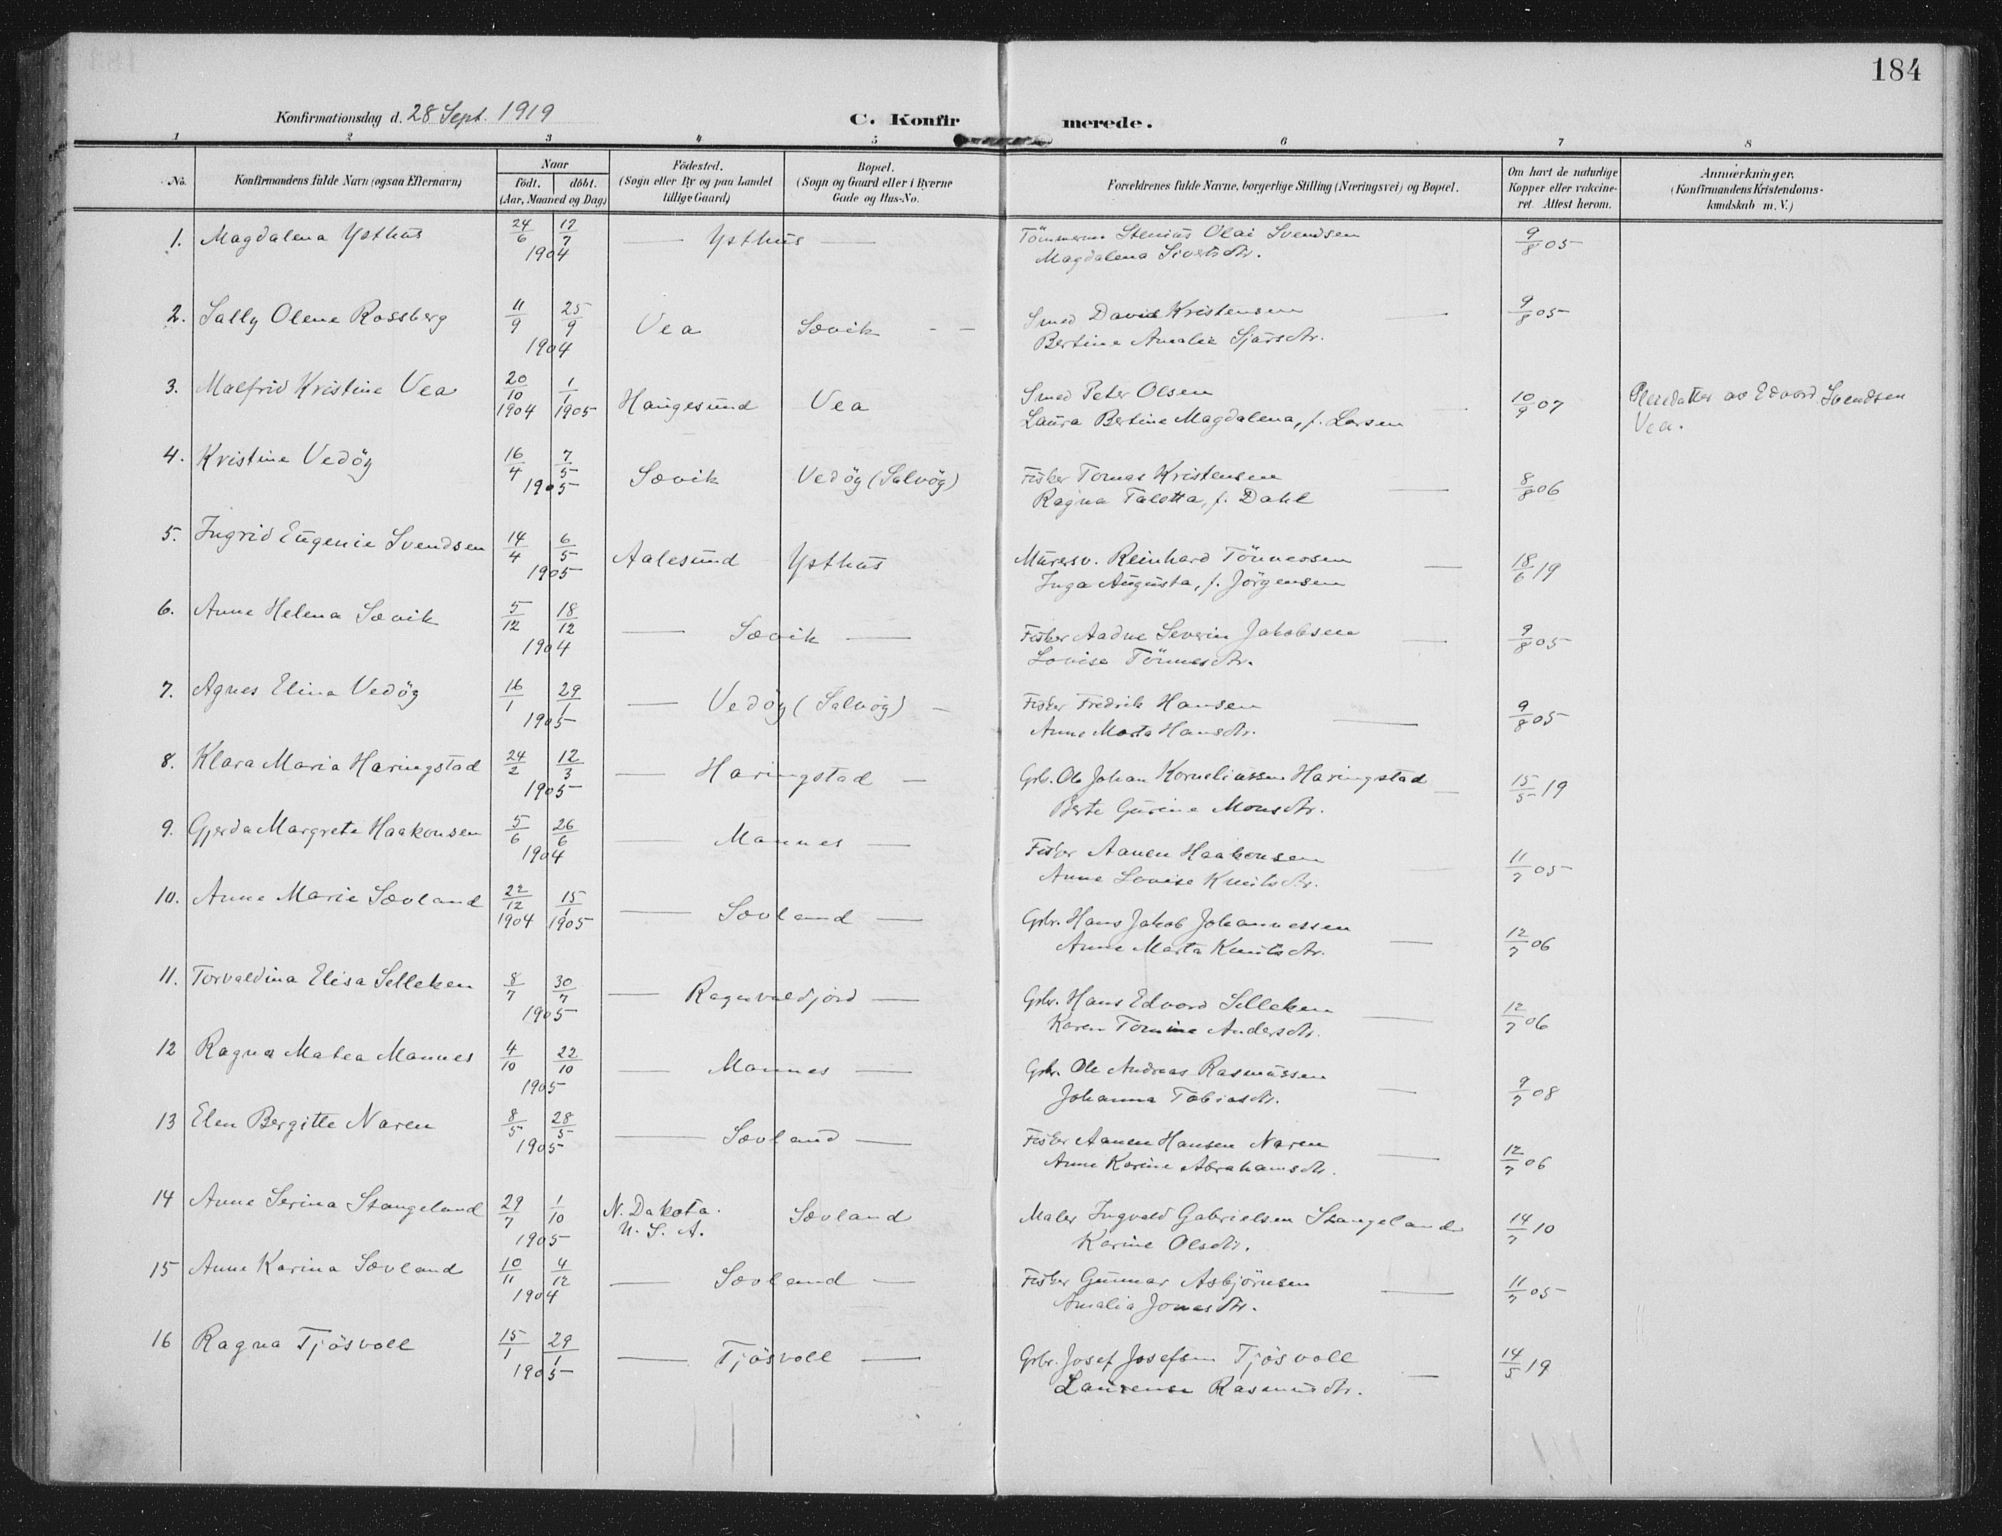 184
Konfirmationsdag d. 28 Sept. 1919
C. Konfirmerede.
1 2 3 4 5 6 7 8
No. Konfirmandens fulde Navn (ogsaa Efternavn) Naar födt. döbt. (Aar, Maaned og Dag) Födested. (Sogn eller By og paa Landet tillige Gaard) Bopæl. (Sogn og Gaard eller i Byerne Gade og Hus-No. Forældrenes fulde Navne, borgerlige Stilling (Næringsvei) og Bopæl. Om havt de naturlige Kopper eller vaccineret. Attest herom. Anmærkninger. (Konfirmandens Kristendomskundskab m. V.)
1. Magdalena Ysthus 24/6 17/7 1904 — Ysthus — Tömmerm. Stenius Olai Svendsen 9/8 05
Magdalena Sivertsdtr.
2. Sally Olene Rossberg 11/9 25/9 1904 Vea Sævik - - Smed David Kristensen — 9/8 05
Bertine Amalie Sjursdtr.
3. Malfrid Kristine Vea 20/10 1904 1/1 1905 Haugesund Vea Smed Peter Olsen 10/9 07 Pleiedatter av Edvard Svendsen
Laura Bertine Magdalena, f. Larsen Vea.
4. Kristine Vedöy 16/4 7/5 1905 Sævik Vedöy (Salvöy) Fisker Tomas Kristensen — 8/8 06
Ragna Talette, f. Dahl
5. Ingrid Eugenie Svendsen 14/4 6/5 1905 Aalesund Ysthus Murersv. Reinhard Tönnessen — 18/6 19
Inga Augusta, f. Jörgensen
6. Anne Helena Sævik 5/12 18/12 1904 — Sævik — Fisker Aadne Severin Jakobsen — 9/8 05
Lovise Tönnesdtr.
7. Agnes Elina Vedöy 16/1 29/1 1905 — Vedöy (Salvöy) — Fisker Fredrik Hansen — 9/8 05
Anne Marta Hansdtr.
8. Klara Maria Haringstad 24/2 12/3 1905 — Haringstad — Grbr. Ole Johan Korneliussen Haringstad — 15/5 19
Berte Gurine Monsdtr.
9. Gjerda Margrete Haakonsen 5/6 26/6 1904 — Mannes — Fisker Aanen Haakonsen — 11/7 05
Anne Lovise Knutsdtr.
10. Anne Marie Sævland 22/12 1904 15/1 1905 — Sævland — Grbr. Hans Jakob Johannessen — 12/7 06
Anne Marta Knutsdtr.
11. Torvaldina Elisa Selleken 8/7 30/7 1905 — Ragnvaldjord — Grbr. Hans Edvard Selleken — 12/7 06
Karen Tomine Andersdtr.
12 Ragna Matea Mannes 4/10 22/10 1905 — Mannes — Grbr. Ole Andreas Rasmussen — 9/7 08
Johanna Tobiasdtr.
13 Elen Bergitte Naren 8/5 28/5 1905 — Sævland — Fisker Aanen Hansen Naren — 12/7 06
Anne Karine Abrahamsdtr.
14 Anne Serina Stangeland 29/7 1/10 1905 N. Dakota. U. S. A. Sævland Maler Ingvald Gabrielsen Stangeland 14/7 10
Karine Olsdtr.
15 Anne Karina Sævland 10/11 4/12 1904 — Sævland — Fisker Gunnar Asbjörnsen — 11/7 05
Amalia Jonasdtr.
16 Ragna Tjösvoll 15/1 29/1 1905 — Tjösvoll — Grbr. Josef Josefsen Tjösvoll — 14/5 19
Laurense Rasmusdtr.